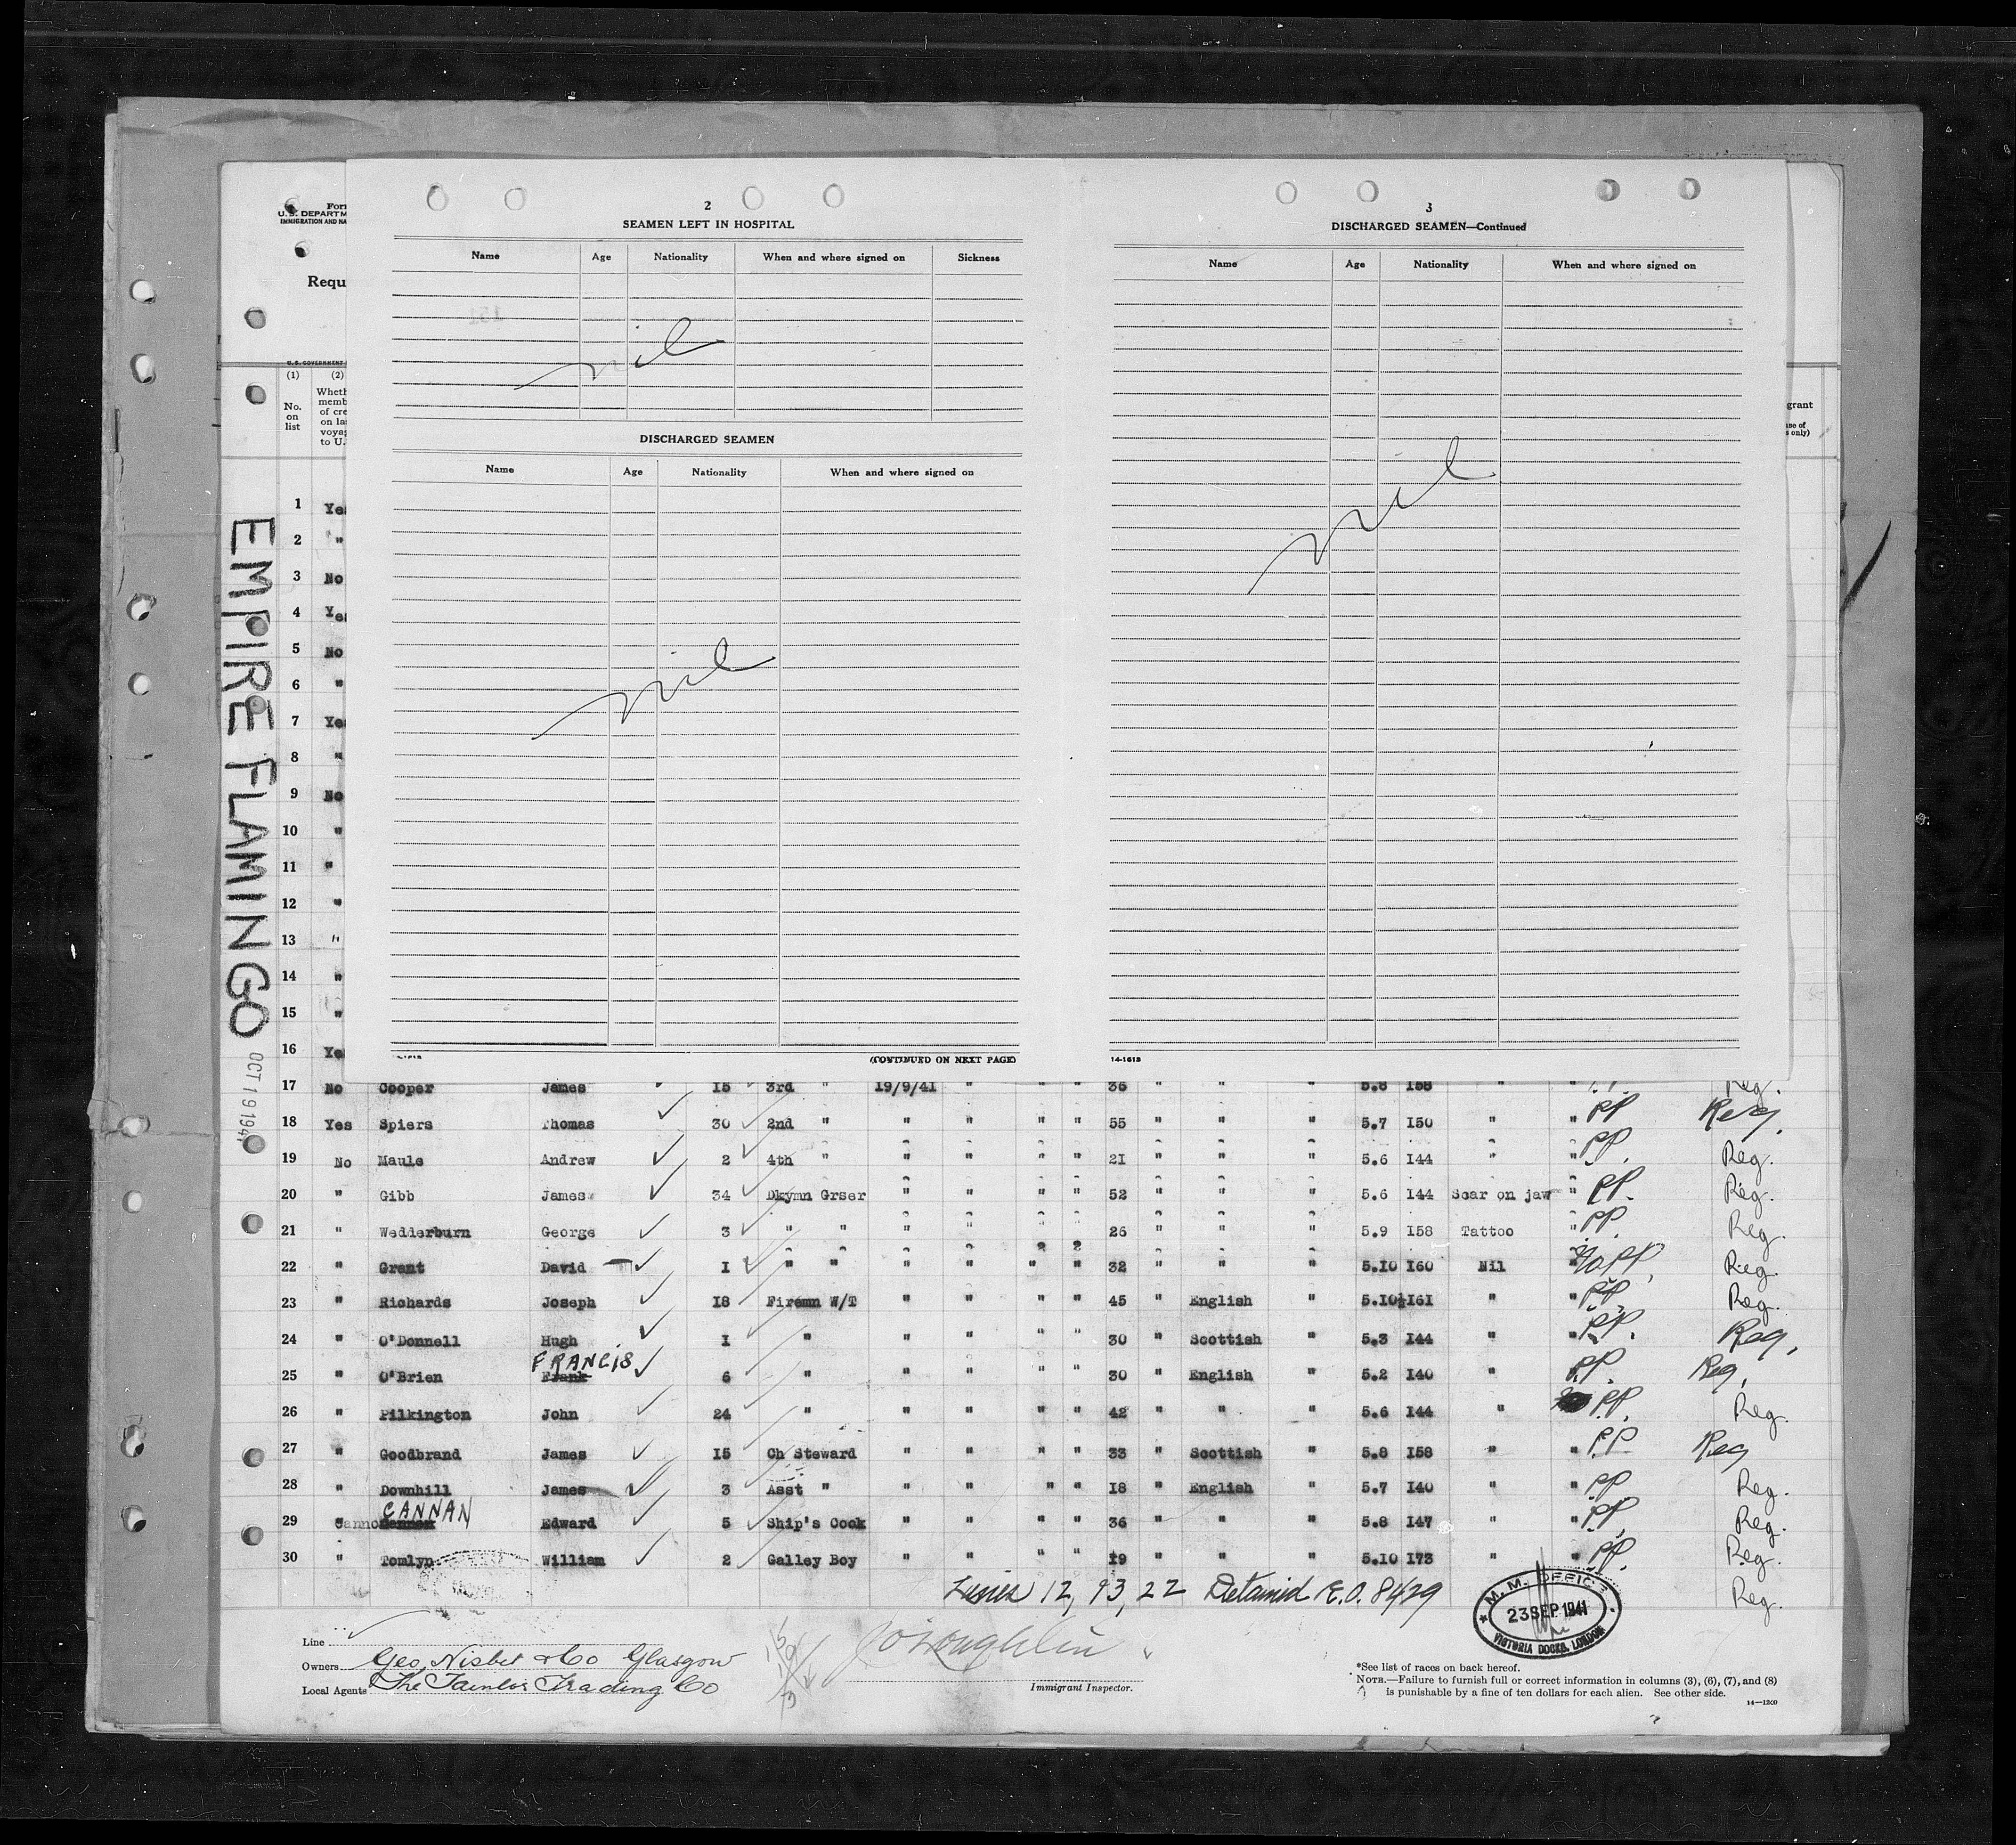 Form
U.S. DEPARTM
IMMIGRATION AND NA
Requ
U.S. GOVERNMENT
(1) (2)
No. on list
Wheth
memb
of cre
on las
voyag
to U.
grant
use of
s only)
EMPIRE FLAMINGO
OCT 19 194
2
SEAMEN LEFT IN HOSPITAL
Name Age Nationality When and where signed on Sickness
nil
DISCHARGED SEAMEN
Name Age Nationality When and where signed on
nil
(CONTINUED ON NEXT PAGE)
3
DISCHARGED SEAMEN—Continued
Name Age Nationality When and where signed on
nil
14-1613
1 Yes
2 "
3 No
4 Yes
5 No
6 "
7 Yes
8 "
9 No
10 "
11 "
12 "
13 "
14 "
15 "
16 Ye
17 No Cooper James 15 3rd " 19/9/41 " " " 36 " " " 5.8 158 " " Reg.
18 Yes Spiers Thomas 30 2nd " " " " " 55 " " " 5.7 150 " " PP Reg.
19 No Maule Andrew 2 4th " " " " " 21 " " " 5.6 144 " " PP. Reg.
20 " Gibb James 34 Dkymn Grser " " " " 52 " " " 5.6 144 Scar on jaw " PP. Reg.
21 " Wedderburn George 3 " " " " " " 26 " " " 5.9 158 Tattoo " PP. Reg.
22 " Grant David 1 " " " " " " 32 " " " 5.10 160 Nil " No PP. Reg.
23 " Richards Joseph 18 Firemn W/T " " " " 45 " English " 5.10½ 161 " " PP Reg.
24 " O'Donnell Hugh 1 " " " " " 30 " Scottish " 5.3 144 " " PP. Reg.
FRANCIS
25 " O'Brien Frank 6 " " " " " 30 " English " 5.2 140 " PP. Reg.
26 " Pilkington John 24 " " " " " 42 " " " 5.6 144 " PP. Reg.
27 " Goodbrand James 15 Ch Steward " " " " 33 " Scottish " 5.8 158 " " PP Reg
28 " Downhill James 3 Asst " " " " " 18 " English " 5.7 140 " " PP Reg.
CANNAN
29 " Edward 5 Ship's Cook " " " " 36 " " " 5.8 147 " " PP. Reg.
30 " Tomlyn William 2 Galley Boy " " " " 19 " " " 5.10 173 " " PP. Reg.
Lines 12, 13, 22 Detained E.O. 8429 Reg.
M. M. OFFICE
23 SEP 1941
VICTORIA DOCKS, LONDON
Line
Owners Geo. Nisbet & Co Glasgow
Local Agents The Taintor Trading Co
O'Loughlin
Immigrant Inspector.
*See list of races on back hereof.
NOTE.—Failure to furnish full or correct information in columns (3), (6), (7), and (8)
is punishable by a fine of ten dollars for each alien. See other side.
14—1200